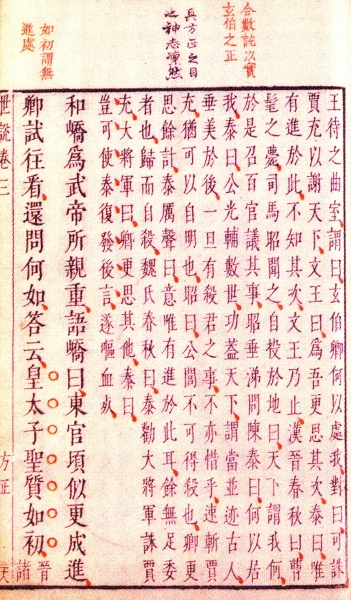 合數說以實
玄伯之正
方正之目
之神志凜然
如初謂無
進處
王待之曲室謂曰玄伯卿何以處我對曰可誅
賈充以謝天下文王曰爲吾更思其次泰曰唯
有進於此不知其次文王乃止漢晉春秋曰曹
髦之薨司馬昭聞之自投於地曰天下謂我何
於是召百官議其事昭垂涕問陳泰曰何以居
我泰曰公光輔數世功蓋天下謂當並迹古人
垂美於後一旦有殺君之事不亦惜乎速斬賈
充猶可以自明也昭曰公閭不可得殺也卿更
思餘計泰厲聲曰意唯有進於此耳餘無足委
者也歸而自殺魏氏春秋曰泰勸大將軍誅賈
充大將軍曰卿更思其他泰曰
豈可使泰復發後言遂嘔血死
和嶠爲武帝所親重語嶠曰東宮頃似更成進
卿試往看還問何如答云皇太子聖質如初晉諸
世說卷三 方正